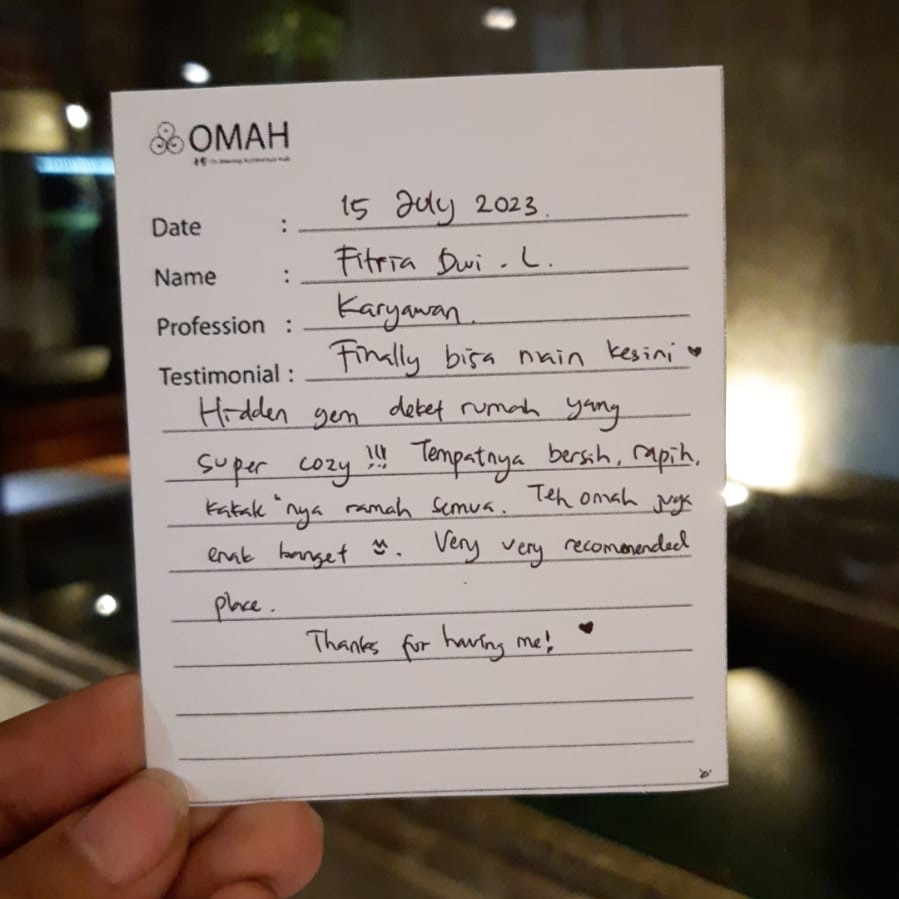 OMAH
Date : 15 July 2023.
Name : Fitria Dwi . L.
Profession : Karyawan.
Testimonial : Finally bisa main kesini ♥
Hidden gem deket rumah yang
super cozy !!! Tempatnya bersih, rapih,
kakak"nya ramah semua. Teh omah juga
enak banget . Very very recommended
place.
Thanks for having me! ♥